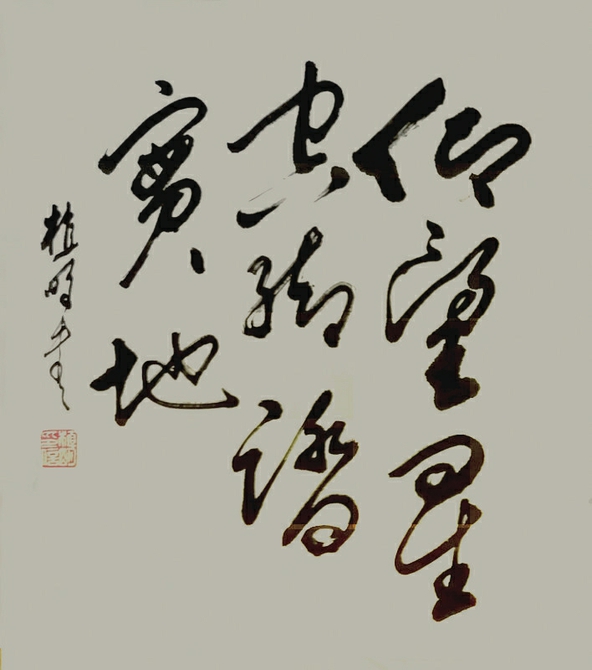 仰望星
空脚踏
實地
植明书